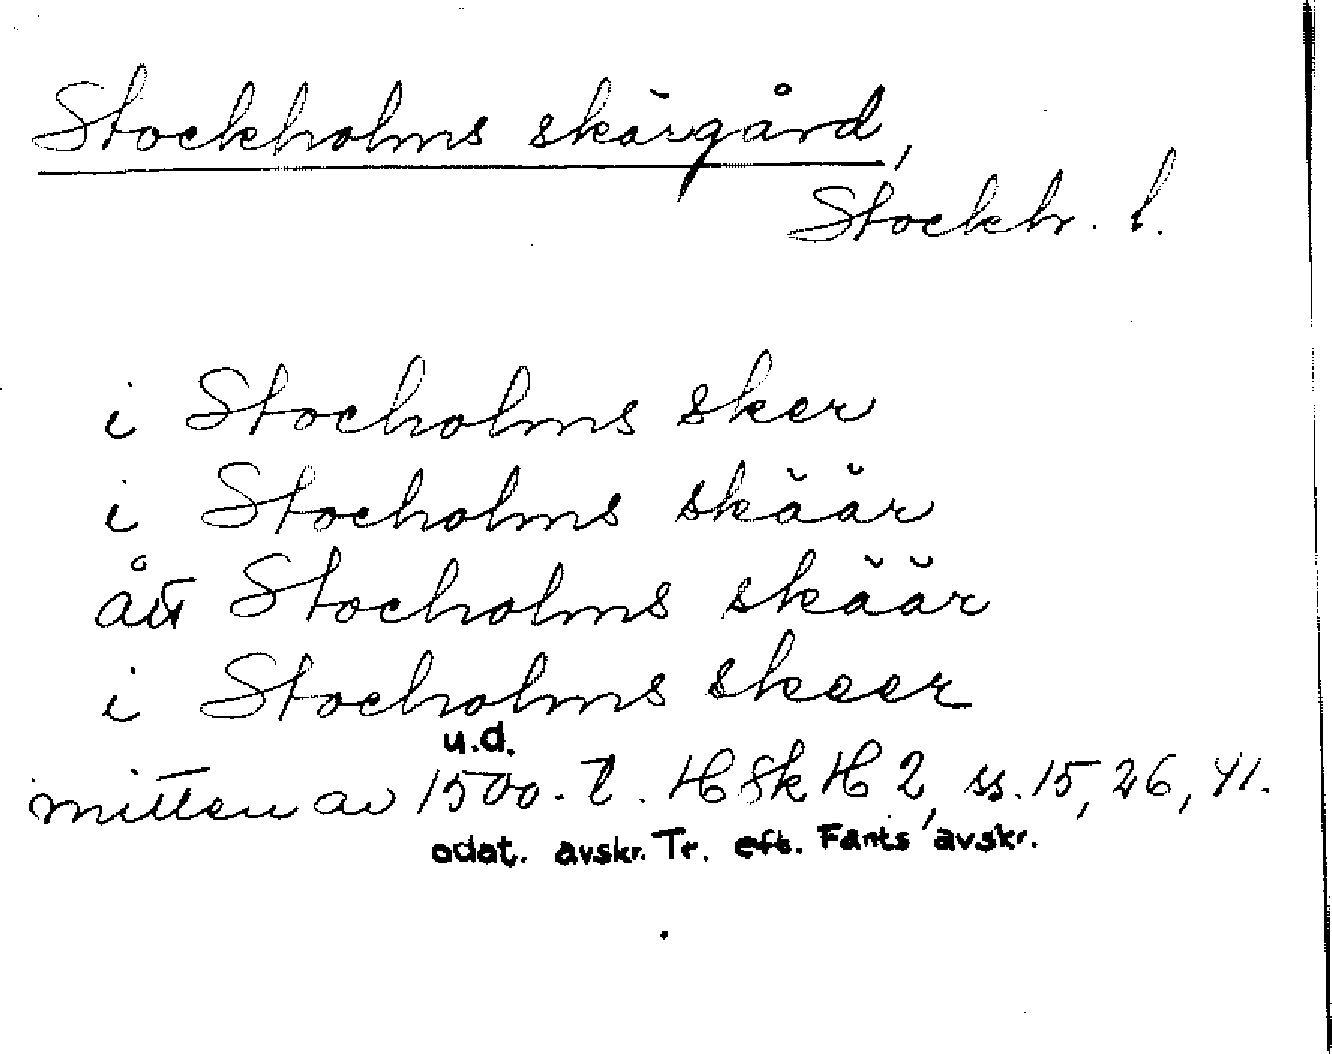 Stockholms skärgård,
Stockh. l.
i Stocholms sker
i Stocholms skäär
åt Stocholms skäär
i Stocholms skeer
u.d.
mitten av 1500-t. HSkH 2, ss. 15, 26, 41.
odat. avskr. Tr. eft. Fants avskr.